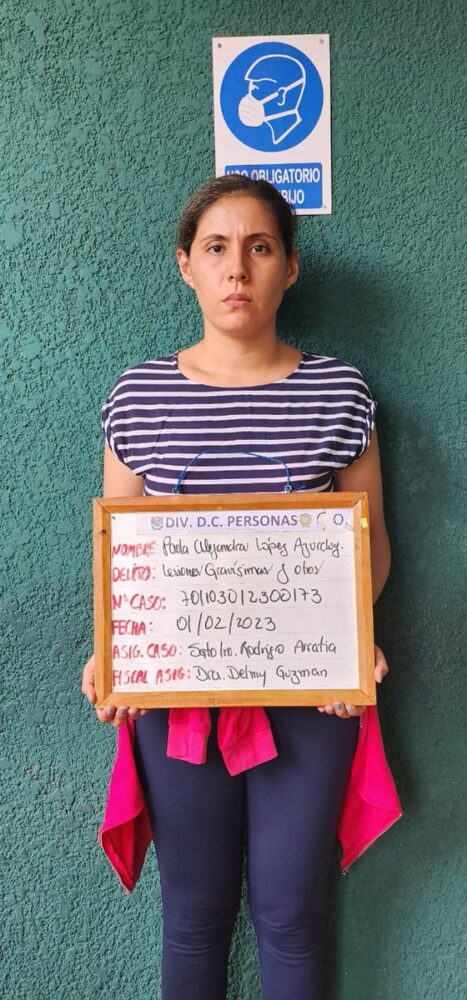 USO OBLIGATORIO
BIJO
DIV. D.C. PERSONAS O.
NOMBRE: Paola Alejandra López Azurduy.
DELITO: Lesiones Gravísimas y otros
Nº CASO: 701103012300173
FECHA: 01/02/2023
ASIG. CASO: Sgto 1ro. Rodrigo Arratia
FISCAL ASIG: Dra. Delmy Guzman